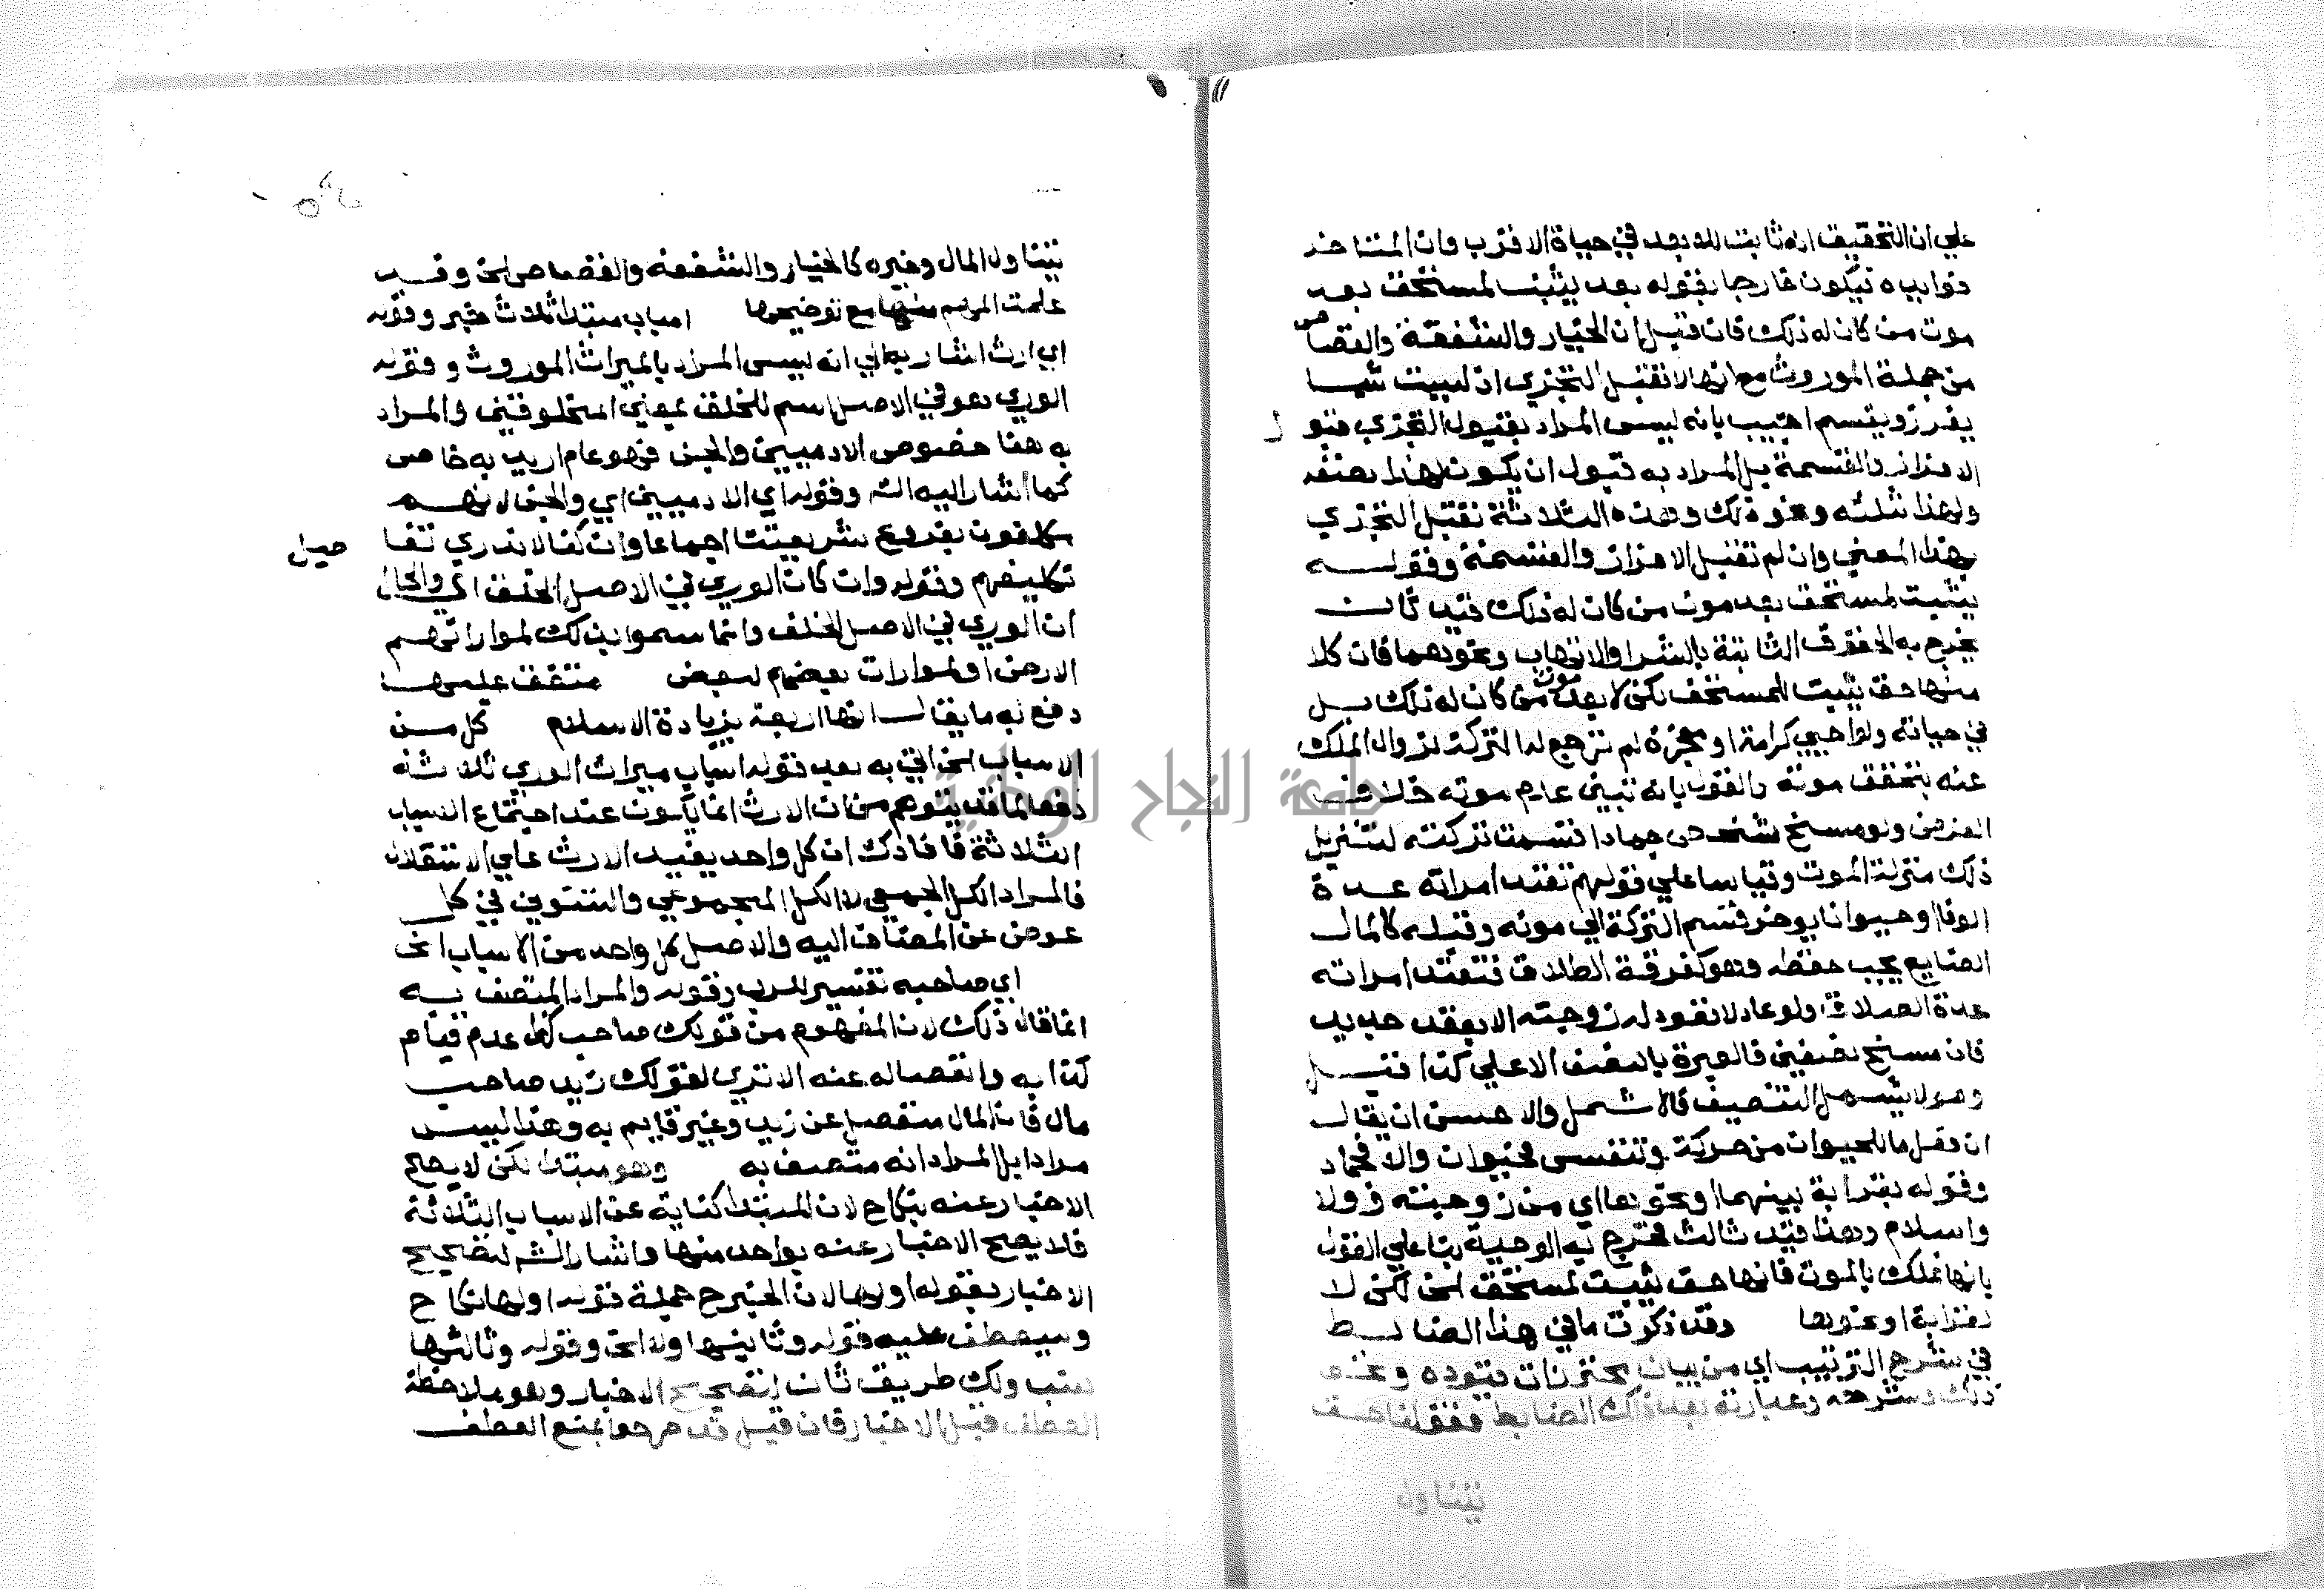 علي ان التحقيق انه ثابت للابعد في حياة الاقرب وان المتاخر
ثوابيده فيكون خارجا بقوله بعد يثبت لمستحق بعد
موت من كان له ذلك فان قيل ان الخيار والشفعة والقصاص
من جملة الموروث مع انها لا تقبل التجزي اذ ليست شيا
يفرز ويقسم اجيب بانه ليس المراد بقبول التجزي قبول
الافراز والقسمة بل المراد به قبول ان يكون لهذا نصفه
ولهذا ثلثه ونحو ذلك وهذه الثلاثة تقبل التجزي
بهذا المعني وان لم تقبل الافراز والقسمة وقوله
يثبت لمستحق بعد موت من كان له ذلك قيد ثان
يخرج به الحقوق الثابتة بالشرا والاتهاب ونحوهما فان كلا
منها حق يثبت للمستحق لكن لا بعد موت من كان له ذلك بل
في حياته ولو احيي كرامة او معجزة لم ترجع له التركة لزوال الملك
عنه بتحقق موته والقول بانه تبين عدم موته خلاف
الفرض ولو مسخ شخص جمادا قسمت تركته لتنزيل
ذلك منزلة الموت وقياسا علي قولهم تعتد امراته عدة
الوفا او حيوانا يوخر قسم التركة الي موته وقبله كالمال
الضايع يجب حفظه وهو كفرقة الطلاق فتعتد امراته
عدة الطلاق ولو عاد لا تعود له زوجته الا بعقد جديد
فان مسخ نصفين فالعبرة بالنصف الاعلي كذا قيل
وهو لا يشمل التنصيف والاحسن ان يقال
ان فعل ما للحيوان من حركة وتنفس فحيوان والا فجماد
وقوله بقرابة بينهما او نحوها اي من زوجية وولا
واسلام وهذا قيد ثالث مخرج به الوصية بنا علي القول
بانها تملك بالموت فانها حق يثبت لمستحق الخ لكن لا
بقرابة او نحوها وقد ذكرت ما في هذا الضابط
في شرح الترتيب اي من بيان محترزات قيوده ونحو
ذلك وشرحه وعبارته بعد ذلك الضابط فقولنا حق
يتناول
يتناول المال وغيره كالخيار والشفعة والقصاص الخ وقد
علمت المهم منها مع توضيحها اسباب مبتدا ثلاثة خبر وقوله
اي ارث اشار به الي انه ليس المراد بالميراث الموروث وقوله
الوري هو في الاصل اسم للخلق بمعني المخلوقين والمراد
به هنا خصوص الادميين والجن فهو عام اريد به خاص
كما اشار اليه الش وقوله اي الادميين اي والجن لانهم
مكلفون بفروع شريعتنا اجماعا وان كنا لا ندري تفاصيل
تكليفهم وقوله وان كان الوري في الاصل الخلق اي والحال
ان الوري في الاصل الخلق وانما سموا بذلك لمواراتهم
الارض او لموارات بعضهم لبعض متفق عليها
دفع به ما يقال انها اربعة بزيادة الاسلام كل من
الاسباب الخ اتي به بعد قوله اسباب ميراث الوري ثلاثة
دفعا لما قد يتوهم من ان الارث انما يكون عند اجتماع الاسباب
الثلاثة فافاد ذلك ان كل واحد يفيد الارث علي الاستقلال
فالمراد الكل الجميعي لا الكل المجموعي والتنوين في كل
عوض عن المضاف اليه والاصل كل واحد من الاسباب الخ
اي صاحبه تفسير لربه وقوله والمراد المتصف به
انما قال ذلك لان المفهوم من قولك صاحب كذا عدم قيام
كذا به وانفصاله عنه الا تري لقولك زيد صاحب
مال فان المال منفصل عن زيد وغير قايم به وهذا ليس
مرادا بل المراد انه متصف به وهو مبتدا لكن لا يصح
الاخبار عنه بنكاح لان المبتدا كناية عن الاسباب الثلاثة
فلا يصح الاخبار عنه بواحد منها واشار الش لتصحيح
الاخبار بقوله اولها لان الخبر ح جملة قوله اولها نكاح
وسيعطف عليه قوله وثانيها ولا الخ وقوله وثالثها
نسب ولك طريق ثان لتصحيح الاخبار وهو ملاحظة
العطف قبل الاخبار فان قيل قد صرحوا بمنع العطف